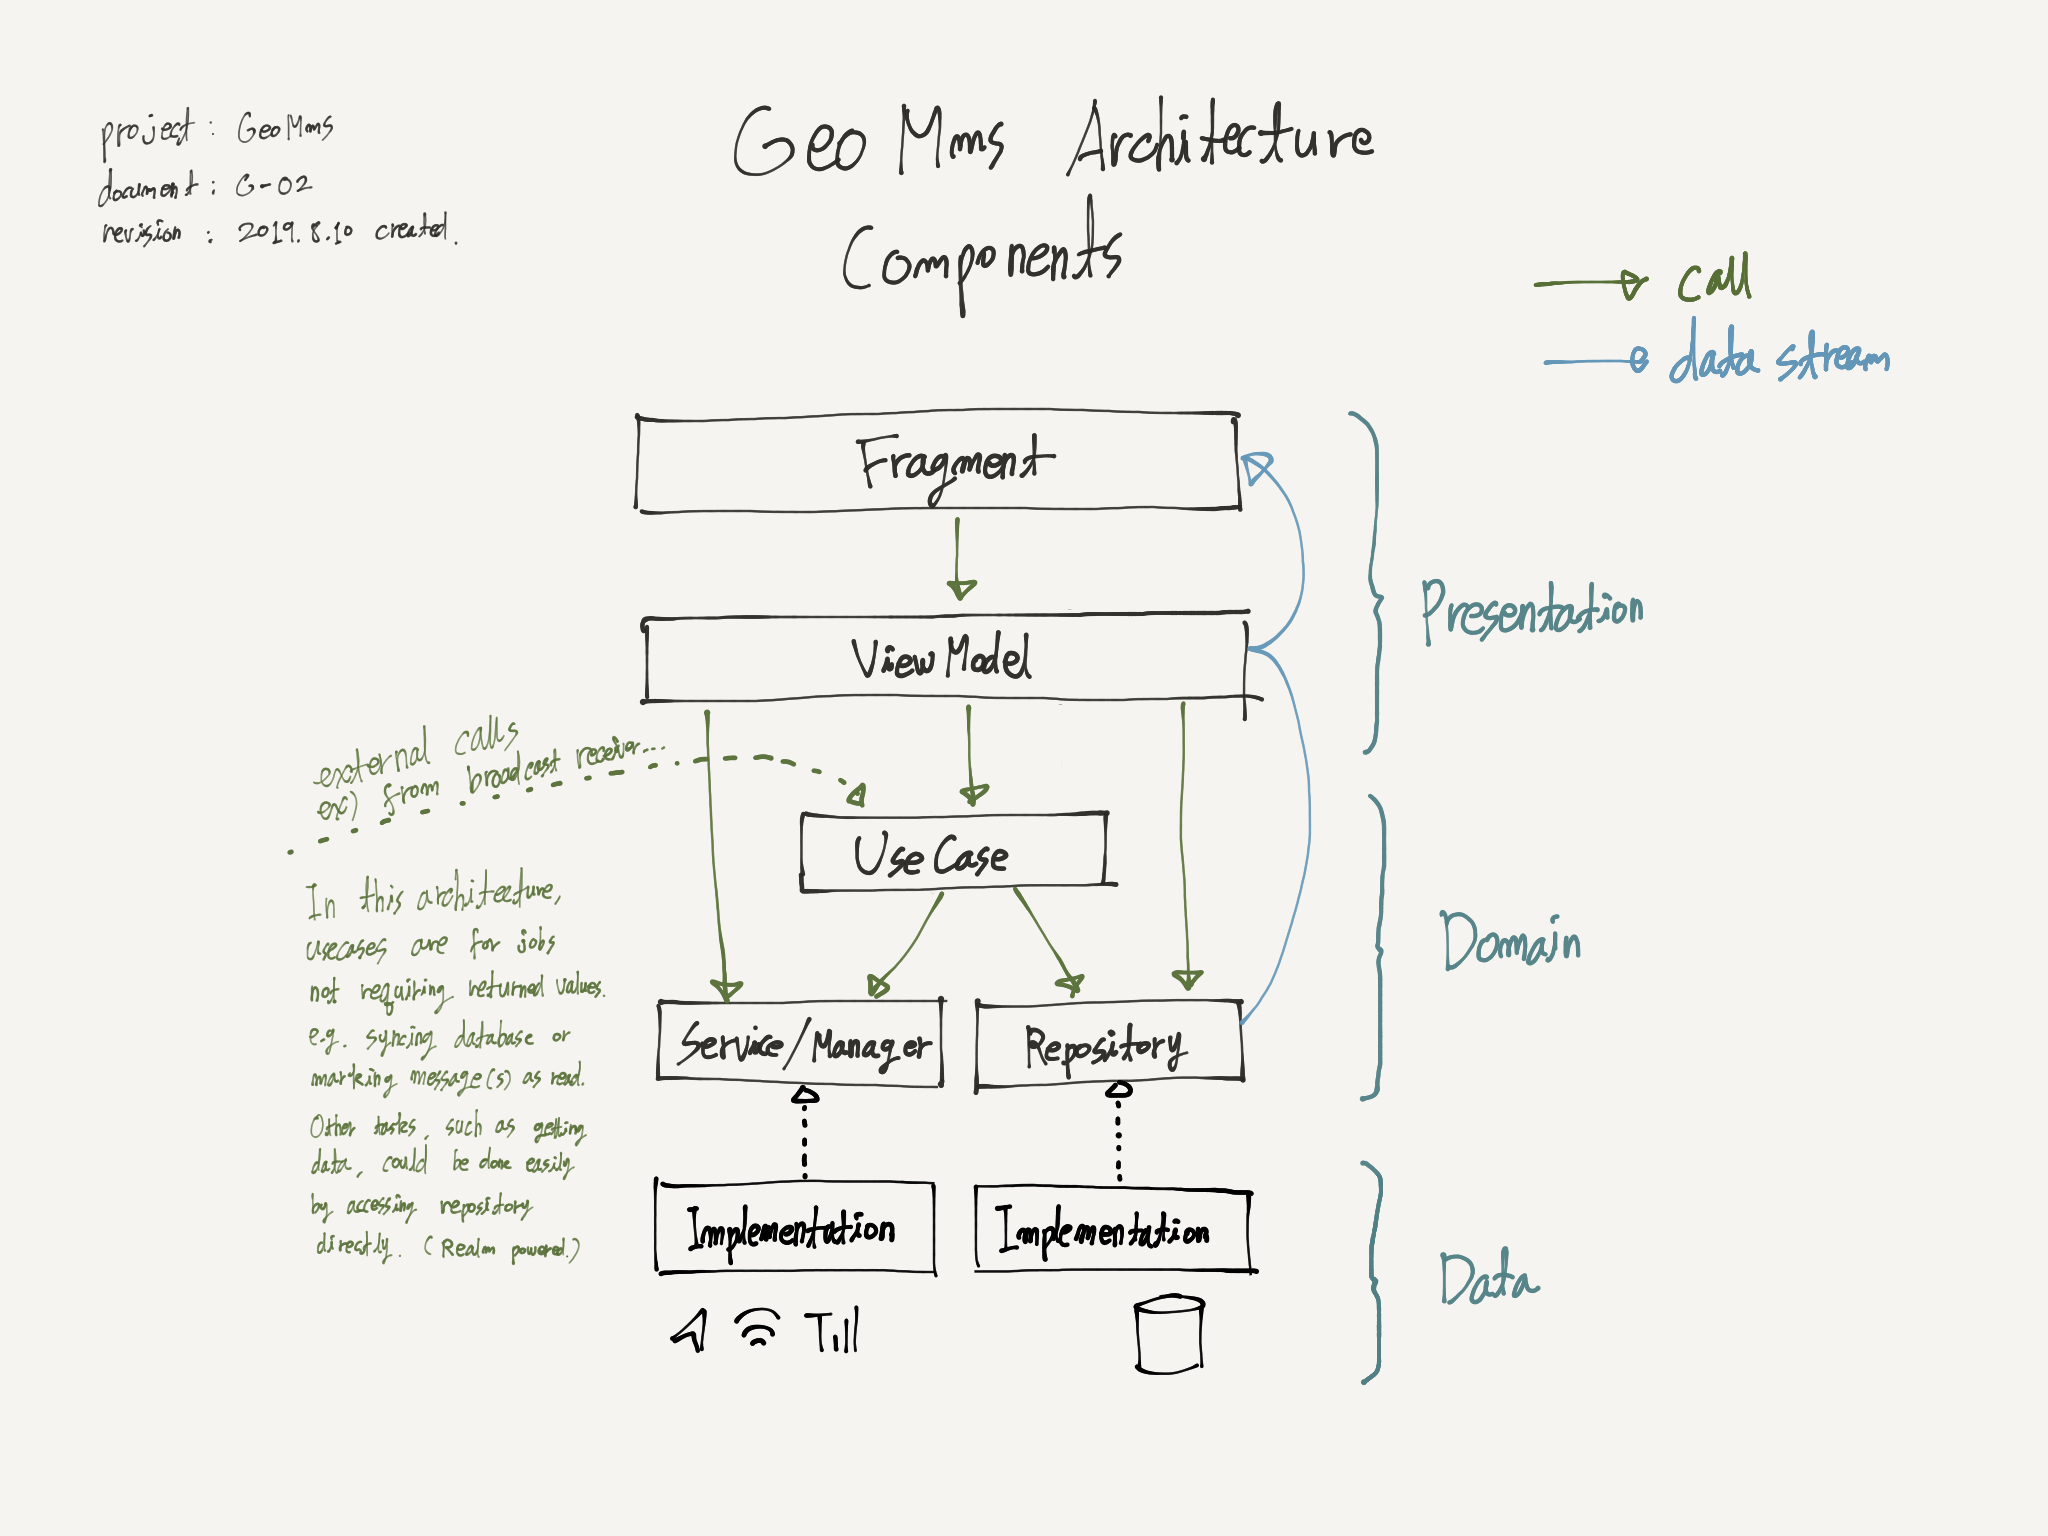 project : GeoMms
document : G-02
revision : 2019.8.10 created.
Geo Mms Architecture
Components
call
data stream
Fragment
ViewModel
Presentation
external calls
ex) from broadcast receiver...
Use Case
Domain
In this architecture,
usecases are for jobs
not requiring returned values.
e.g. syncing database or
marking message(s) as read.
Other tasks, such as getting
data, could be done easily
by accessing repository
directly. (Realm powered.)
Service/Manager
Repository
Implementation
Implementation
Data